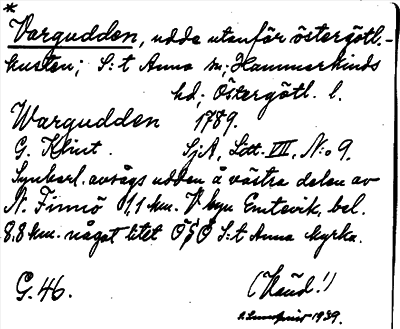 *
Vargudden, udde utanför östergötl.-
kusten; S:t Anna sn; Hammarkinds
hd; Östergötl. l.
Wargudden 1789.
G. Klint. SjA, Litt. VII, N:o 9.
Synbarl. avsågs udden å västra delen av
N. Finnö 1,1 km. V byn Emtevik, bel.
8.8 km. något litet ÖSÖ S:t Anna kyrka.
G. 46. (Haud!)
1939.